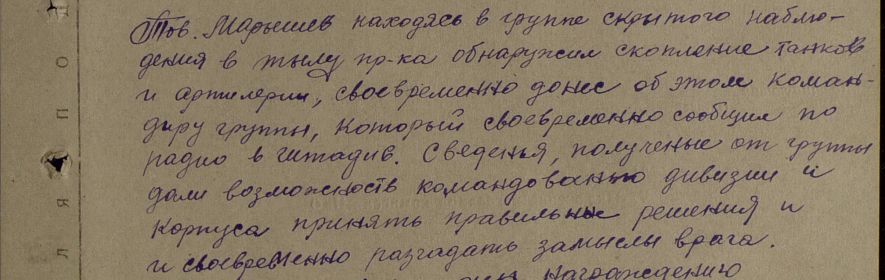 Тов. Марышев находясь в группе скрытого наблю-
дения в тылу пр-ка обнаружил скопление танков
и артилерии, своевременно донес об этом коман-
диру группы, который своевременно сообщил по
радио в штадив. Сведенья, полученые от группы
дали возможность командованию дивизии и
корпуса принять правильные решения и
и своевременно разгадать замыслы врага.
награждению
П О Д
Л Я